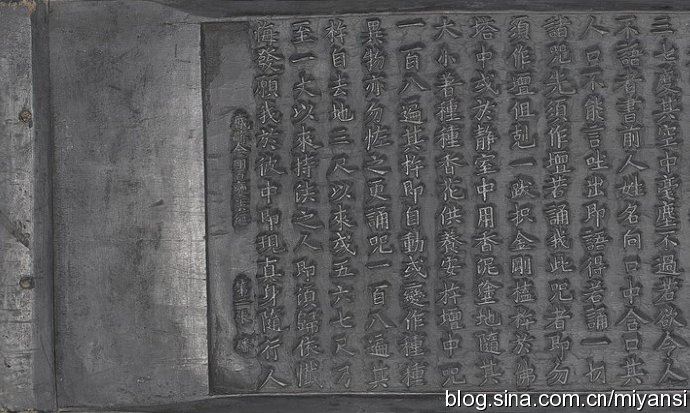 三七度其空中毫塵不過若欲令人
不語者書前人姓名向口中含口其
人口不能言吐出即語得若誦一切
諸咒先須作壇若誦我此咒者即勿
須作壇但剋一跋枳金剛㯿杵於佛
塔中或於静室中用香泥塗地隨其
大小着種種香花供養安杵壇中咒
一百八遍其杵即自動或變作種種
異物亦勿恠之更誦咒一百八遍其
杵自去地三尺以來或五六七尺乃
至一丈以來持法之人即須歸依懺
悔發願我於彼中即現真身隨行人
金剛
blog.sina.com.cn/miyansi